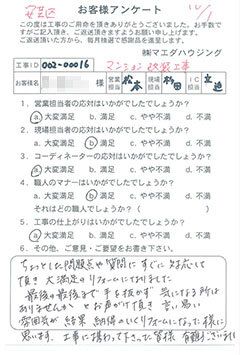 安芸区
10/1
お客様アンケート
この度は工事のご用命を頂きありがとうございました。お手数で
すがご記入頂き、ご返送頂きますようお願い申し上げます。
ご返送頂いた方から、毎月抽選で感謝品を進呈します。
㈱マエダハウジング
工事ID 002-00016 マンション改装工事
お客様名 様 営業担当 松本 現場担当 IC担当
1. 営業担当者の応対はいかがでしたでしょうか?
a 大変満足 b. 満足 c. やや不満 d. 不満
2. 現場担当者の応対はいかがでしたでしょうか?
a. 大変満足 b 満足 c. やや不満 d. 不満
3. コーディネーターの応対はいかがでしたでしょうか?
a 大変満足 b. 満足 c. やや不満 d. 不満
4. 職人のマナーはいかがでしたでしょうか?
a. 大変満足 b 満足 c. やや不満 d. 不満
それはどの職人でしょうか? ( )
5. 工事の仕上がりはいかがでしたでしょうか?
a 大変満足 b. 満足 c. やや不満 d. 不満
6. その他、ご意見・ご要望をお書き下さい。
ちょっとした問題点や質問にすぐに対応して
頂き大満足のリフォームになりました
最後の最後まで手を抜かず 気になる所は
ありませんか とお声がけ頂き 言い易い
雰囲気が結果 納得のいくリフォームになった様に
思います。工事に携わって下さった皆様 有難うございます